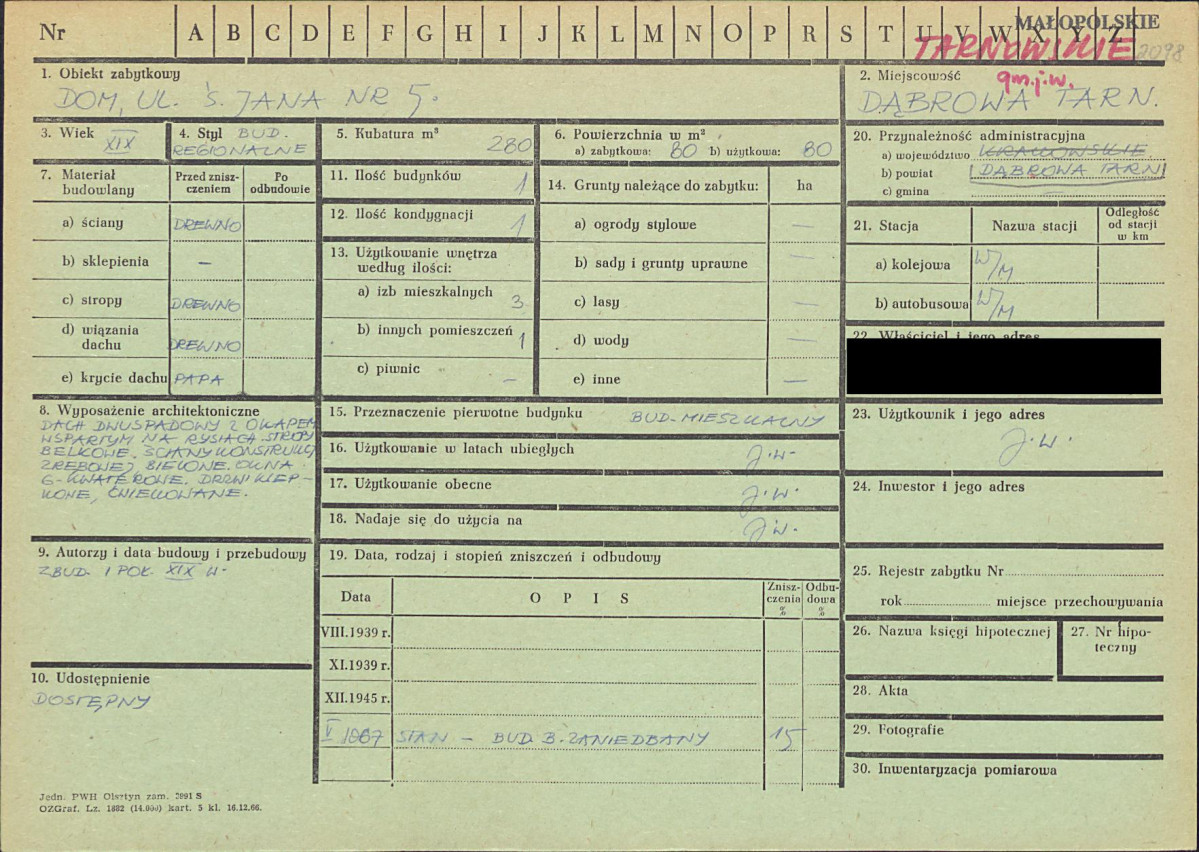 Nr A B C D E F G H I J K L M N O P R S T U V W X Y Z
MAŁOPOLSKIE
TARNOWSKIE 2098
gm. j.w.
1. Obiekt zabytkowy
DOM, UL. Ś. JANA NR 5.
2. Miejscowość
DĄBROWA TARN.
3. Wiek
XIX
4. Styl BUD.
REGIONALNE
5. Kubatura m³
280
6. Powierzchnia w m²
a) zabytkowa: 80 b) użytkowa: 80
7. Materiał budowlany
Przed zniszczeniem
Po odbudowie
a) ściany DREWNO
b) sklepienia –
c) stropy DREWNO
d) wiązania dachu DREWNO
e) krycie dachu PAPA
11. Ilość budynków 1
12. Ilość kondygnacji 1
13. Użytkowanie wnętrza
według ilości:
a) izb mieszkalnych 3
b) innych pomieszczeń 1
c) piwnic –
14. Grunty należące do zabytku: ha
a) ogrody stylowe —
b) sady i grunty uprawne —
c) lasy —
d) wody —
e) inne —
20. Przynależność administracyjna
a) województwo KRAKOWSKIE
b) powiat DĄBROWA TARN
c) gmina
21. Stacja
Nazwa stacji
Odległość
od stacji
w km
a) kolejowa W/M
b) autobusowa W/M
22. Właściciel i jego adres
8. Wyposażenie architektoniczne
DACH DWUSPADOWY Z OKAPEM
WSPARTYM NA RYSIACH. STROPY
BELKOWE. ŚCIANY KONSTRUKCJI
ZRĘBOWEJ BIELONE. OKNA
6-KWATEROWE. DRZWI KLEP-
KOWE, ĆWIEKOWANE.
15. Przeznaczenie pierwotne budynku BUD. MIESZKALNY
16. Użytkowanie w latach ubiegłych j.w.
17. Użytkowanie obecne j.w.
18. Nadaje się do użycia na j.w.
23. Użytkownik i jego adres
j.w.
24. Inwestor i jego adres
9. Autorzy i data budowy i przebudowy
ZBUD. I POŁ. XIX W.
10. Udostępnienie
DOSTĘPNY
19. Data, rodzaj i stopień zniszczeń i odbudowy
Data
O P I S
Znisz-
czenia
%
Odbu-
dowa
%
VIII.1939 r.
XI.1939 r.
XII.1945 r.
V 1967 STAN – BUD. B. ZANIEDBANY 15
25. Rejestr zabytku Nr
rok miejsce przechowywania
26. Nazwa księgi hipotecznej
27. Nr hipo-
teczny
28. Akta
29. Fotografie
30. Inwentaryzacja pomiarowa
Jedn. PWH Olsztyn zam. 2991 S
OZGraf. Lz. 1882 (14.000) kart. 5 kl. 16.12.66.